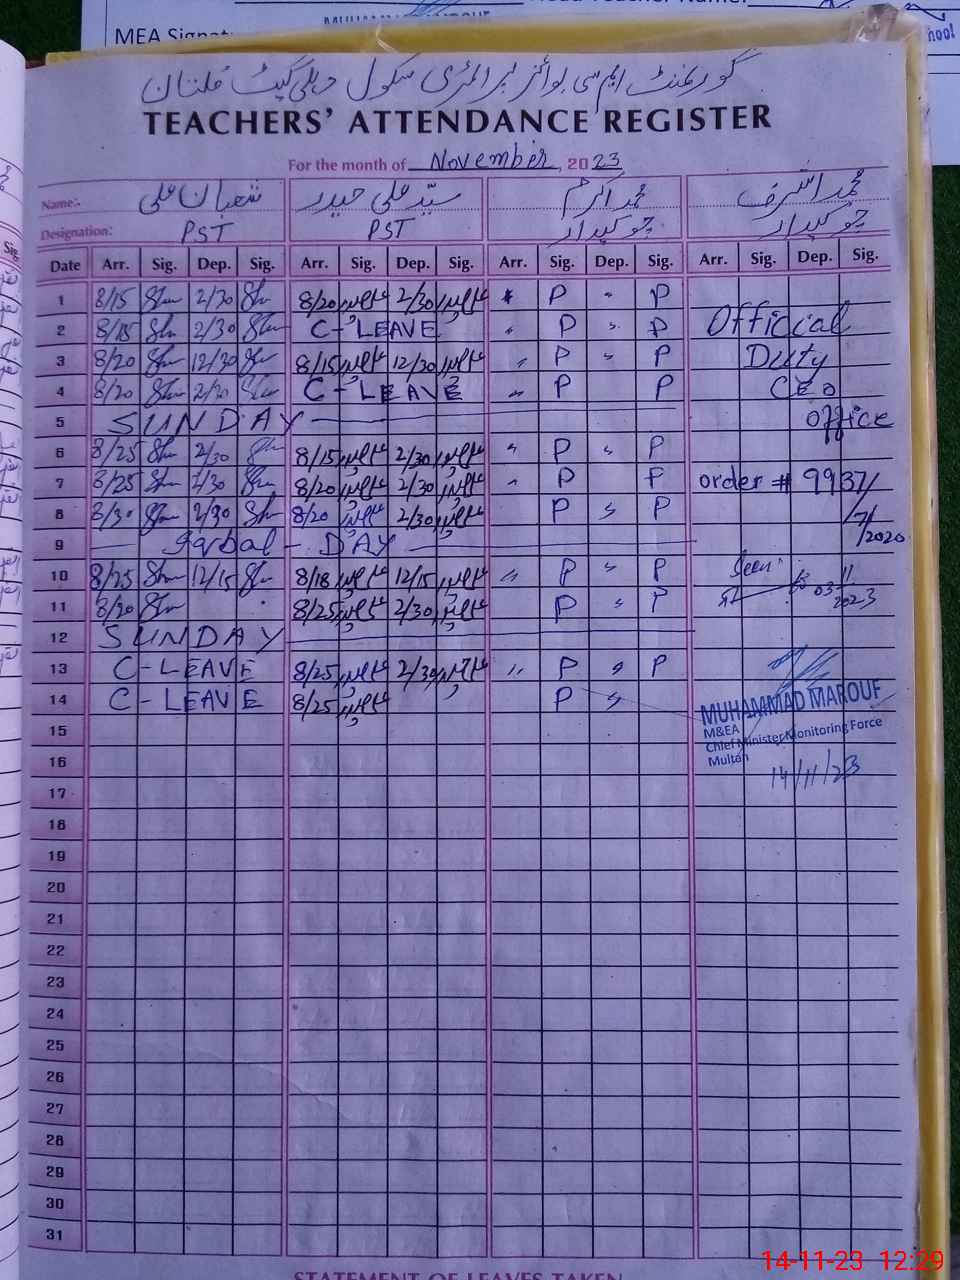 MEA Signatu
Head Teacher Name:
hool
گورنمنٹ ایم سی بوائز پرائمری سکول دہلی گیٹ ملتان
TEACHERS' ATTENDANCE REGISTER
For the month of November, 2023
Name: شعبان علی سید علی حیدر محمد اکرم محمد اشرف
Designation: PST PST چوکیدار چوکیدار
Date Arr. Sig. Dep. Sig. Arr. Sig. Dep. Sig. Arr. Sig. Dep. Sig. Arr. Sig. Dep. Sig.
1 8/15 2/30 8/20 2/30 P " P
2 8/15 2/30 C-LEAVE " P " P Official
3 8/20 12/30 8/15 12/30 " P " P Duty
4 8/20 2/30 C-LEAVE " P P CEO
5 SUNDAY office
6 8/25 2/30 8/15 2/30 " P " P
7 8/25 2/30 8/20 2/30 " P P order # 9937/
8 8/30 2/30 8/20 2/30 P " P 7/2020
9 Iqbal - DAY
10 8/25 12/15 8/18 12/15 " P " P Seen
11 8/20 8/25 2/30 P " P 03-11-2023
12 SUNDAY
13 C-LEAVE 8/25 2/30 " P " P
14 C-LEAVE 8/25 P "
MUHAMMAD MAROUF
M&EA
Chief Minister Monitoring Force
Multan
14/11/23
15
16
17
18
19
20
21
22
23
24
25
26
27
28
29
30
31
STATEMENT OF LEAVES TAKEN
14-11-23 12:29